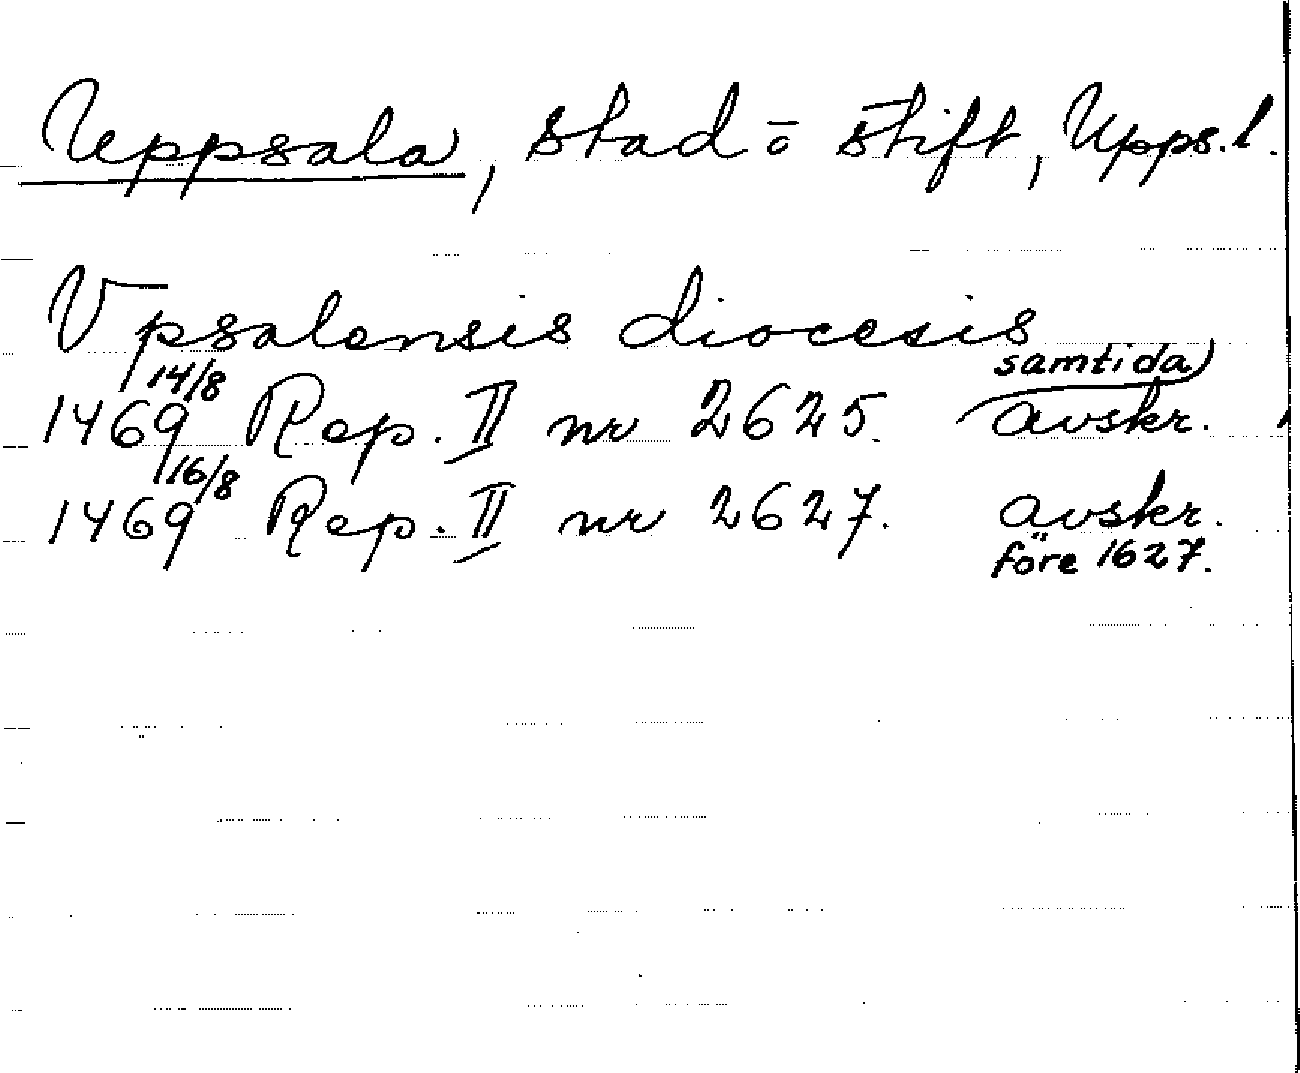 Uppsala, stad ō stift, Upps.l.
Vpsalensis diocesis
1469 14/8 Rep. II nr 2625. samtida avskr.
1469 16/8 Rep. II nr 2627. avskr.
före 1627.